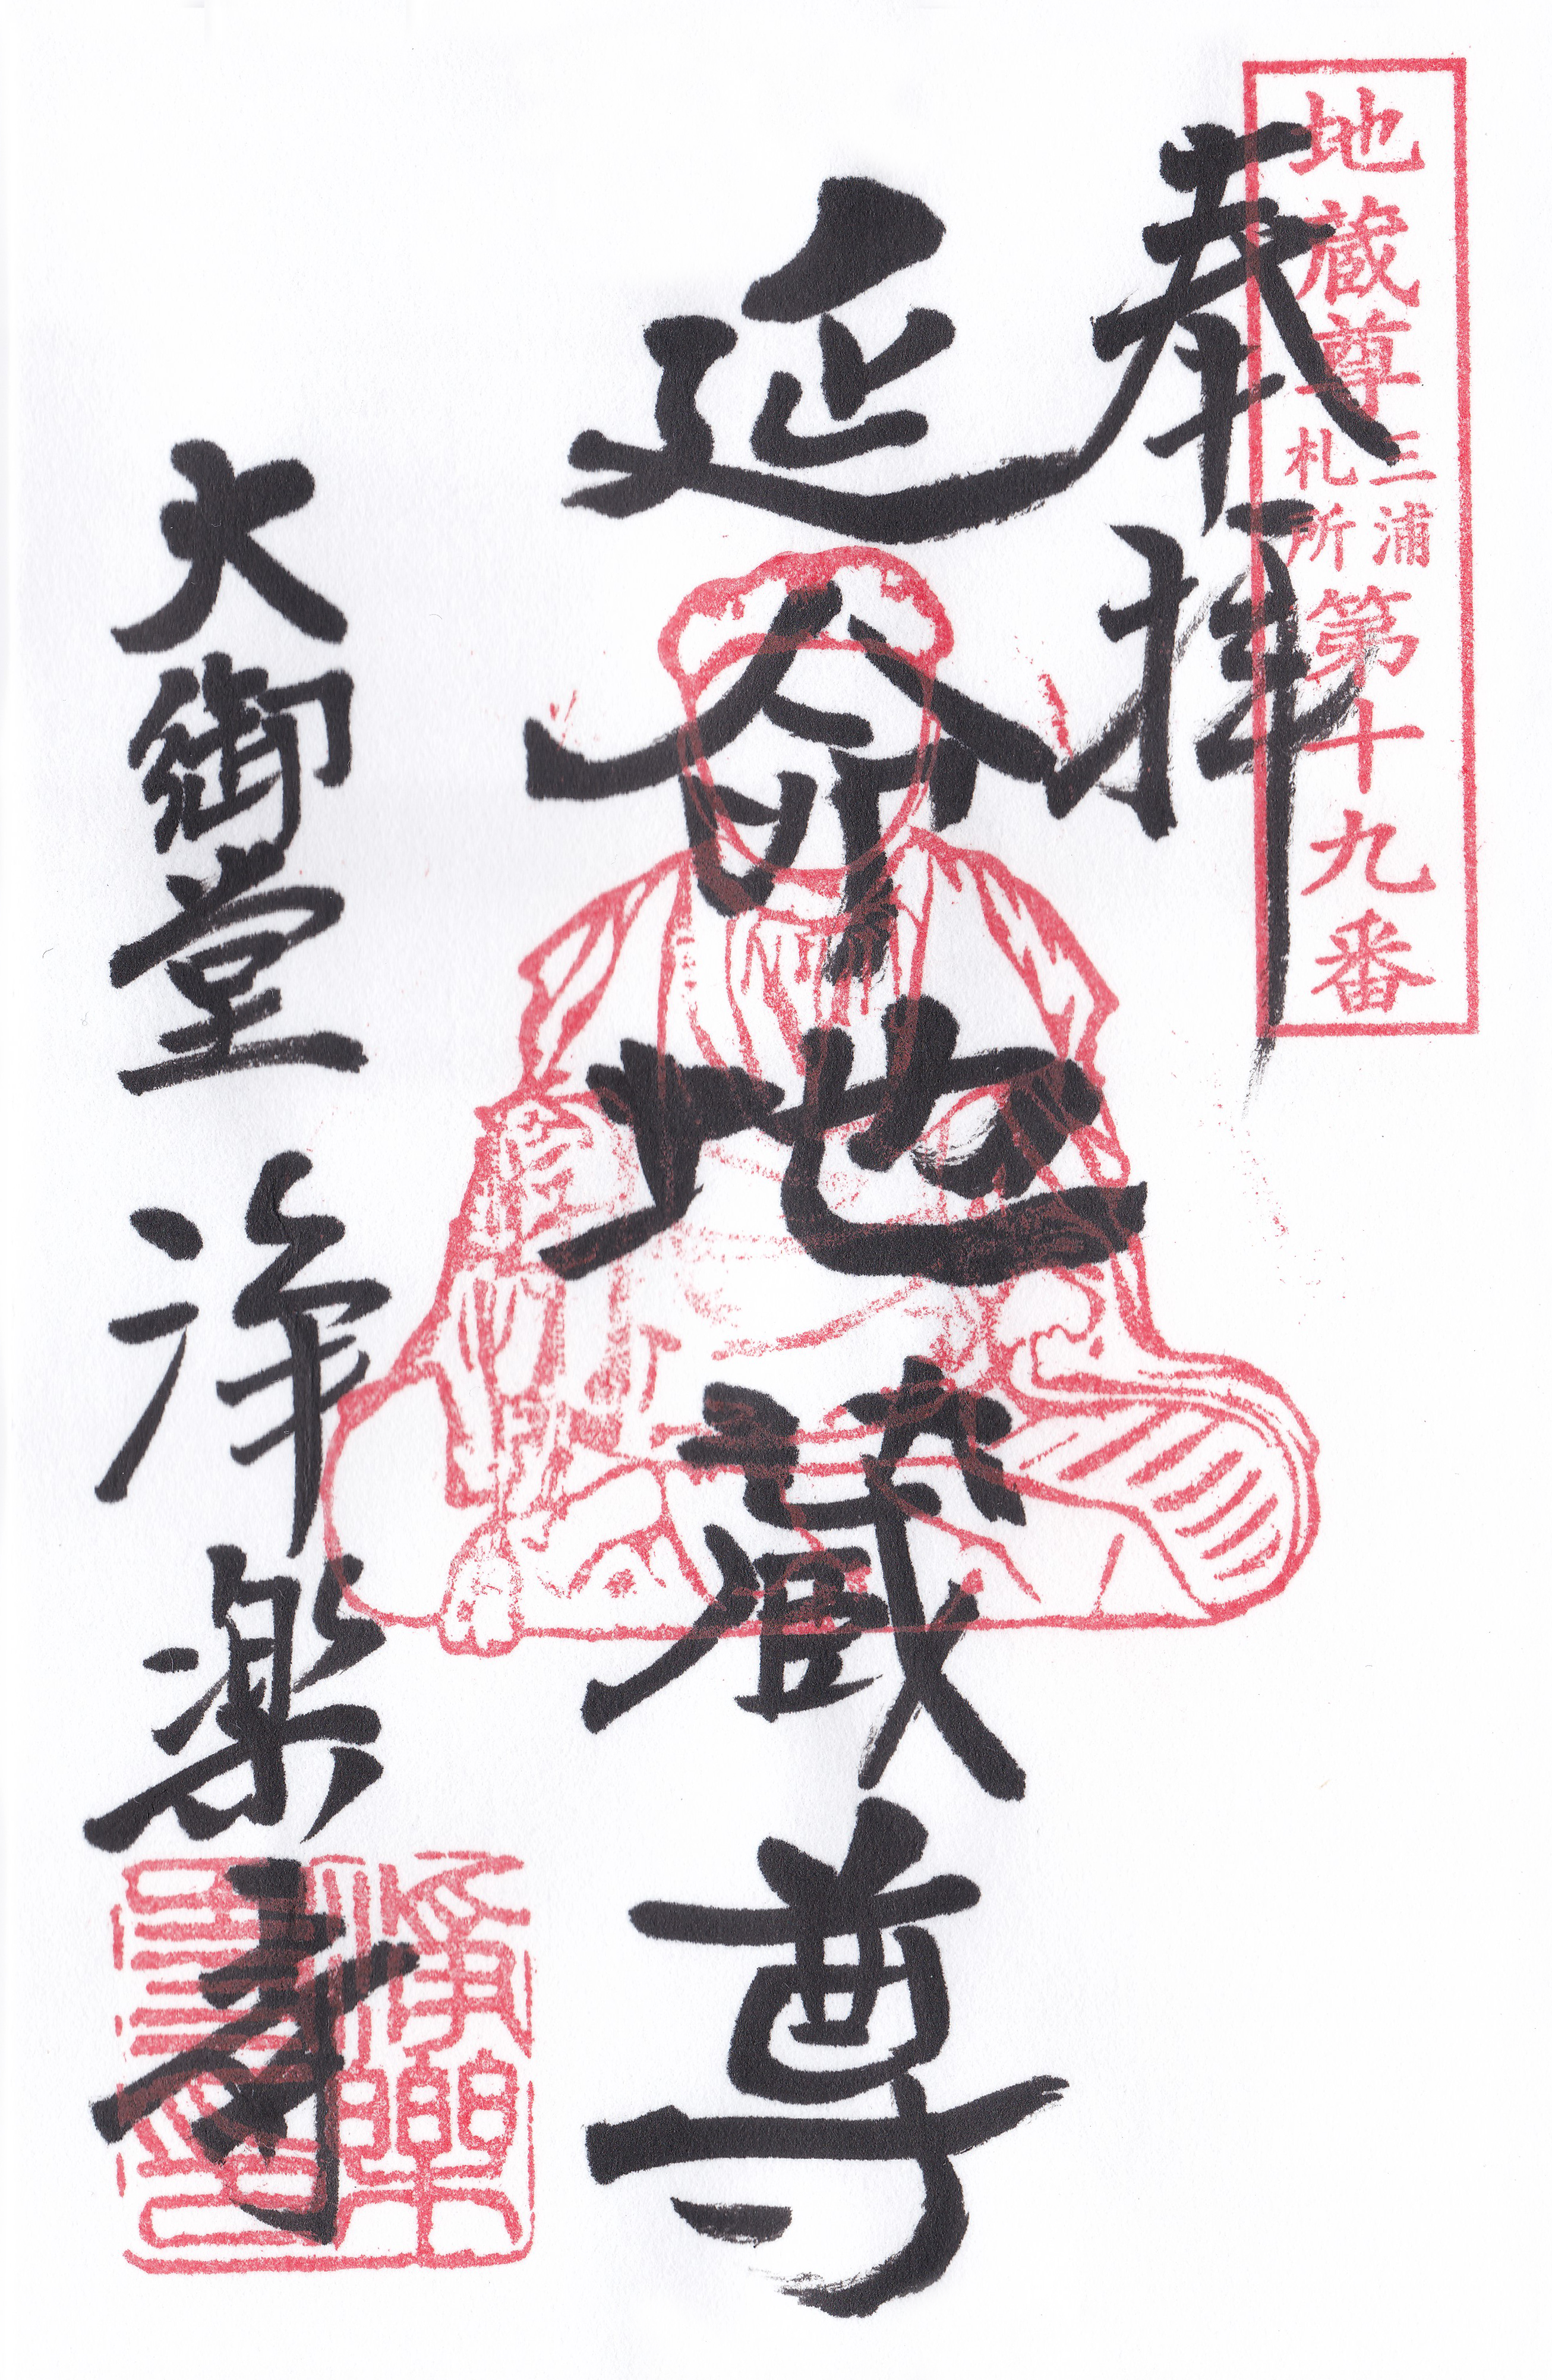 地蔵尊三浦札所第十九番
奉拝
延命地蔵尊
大御堂 浄楽寺